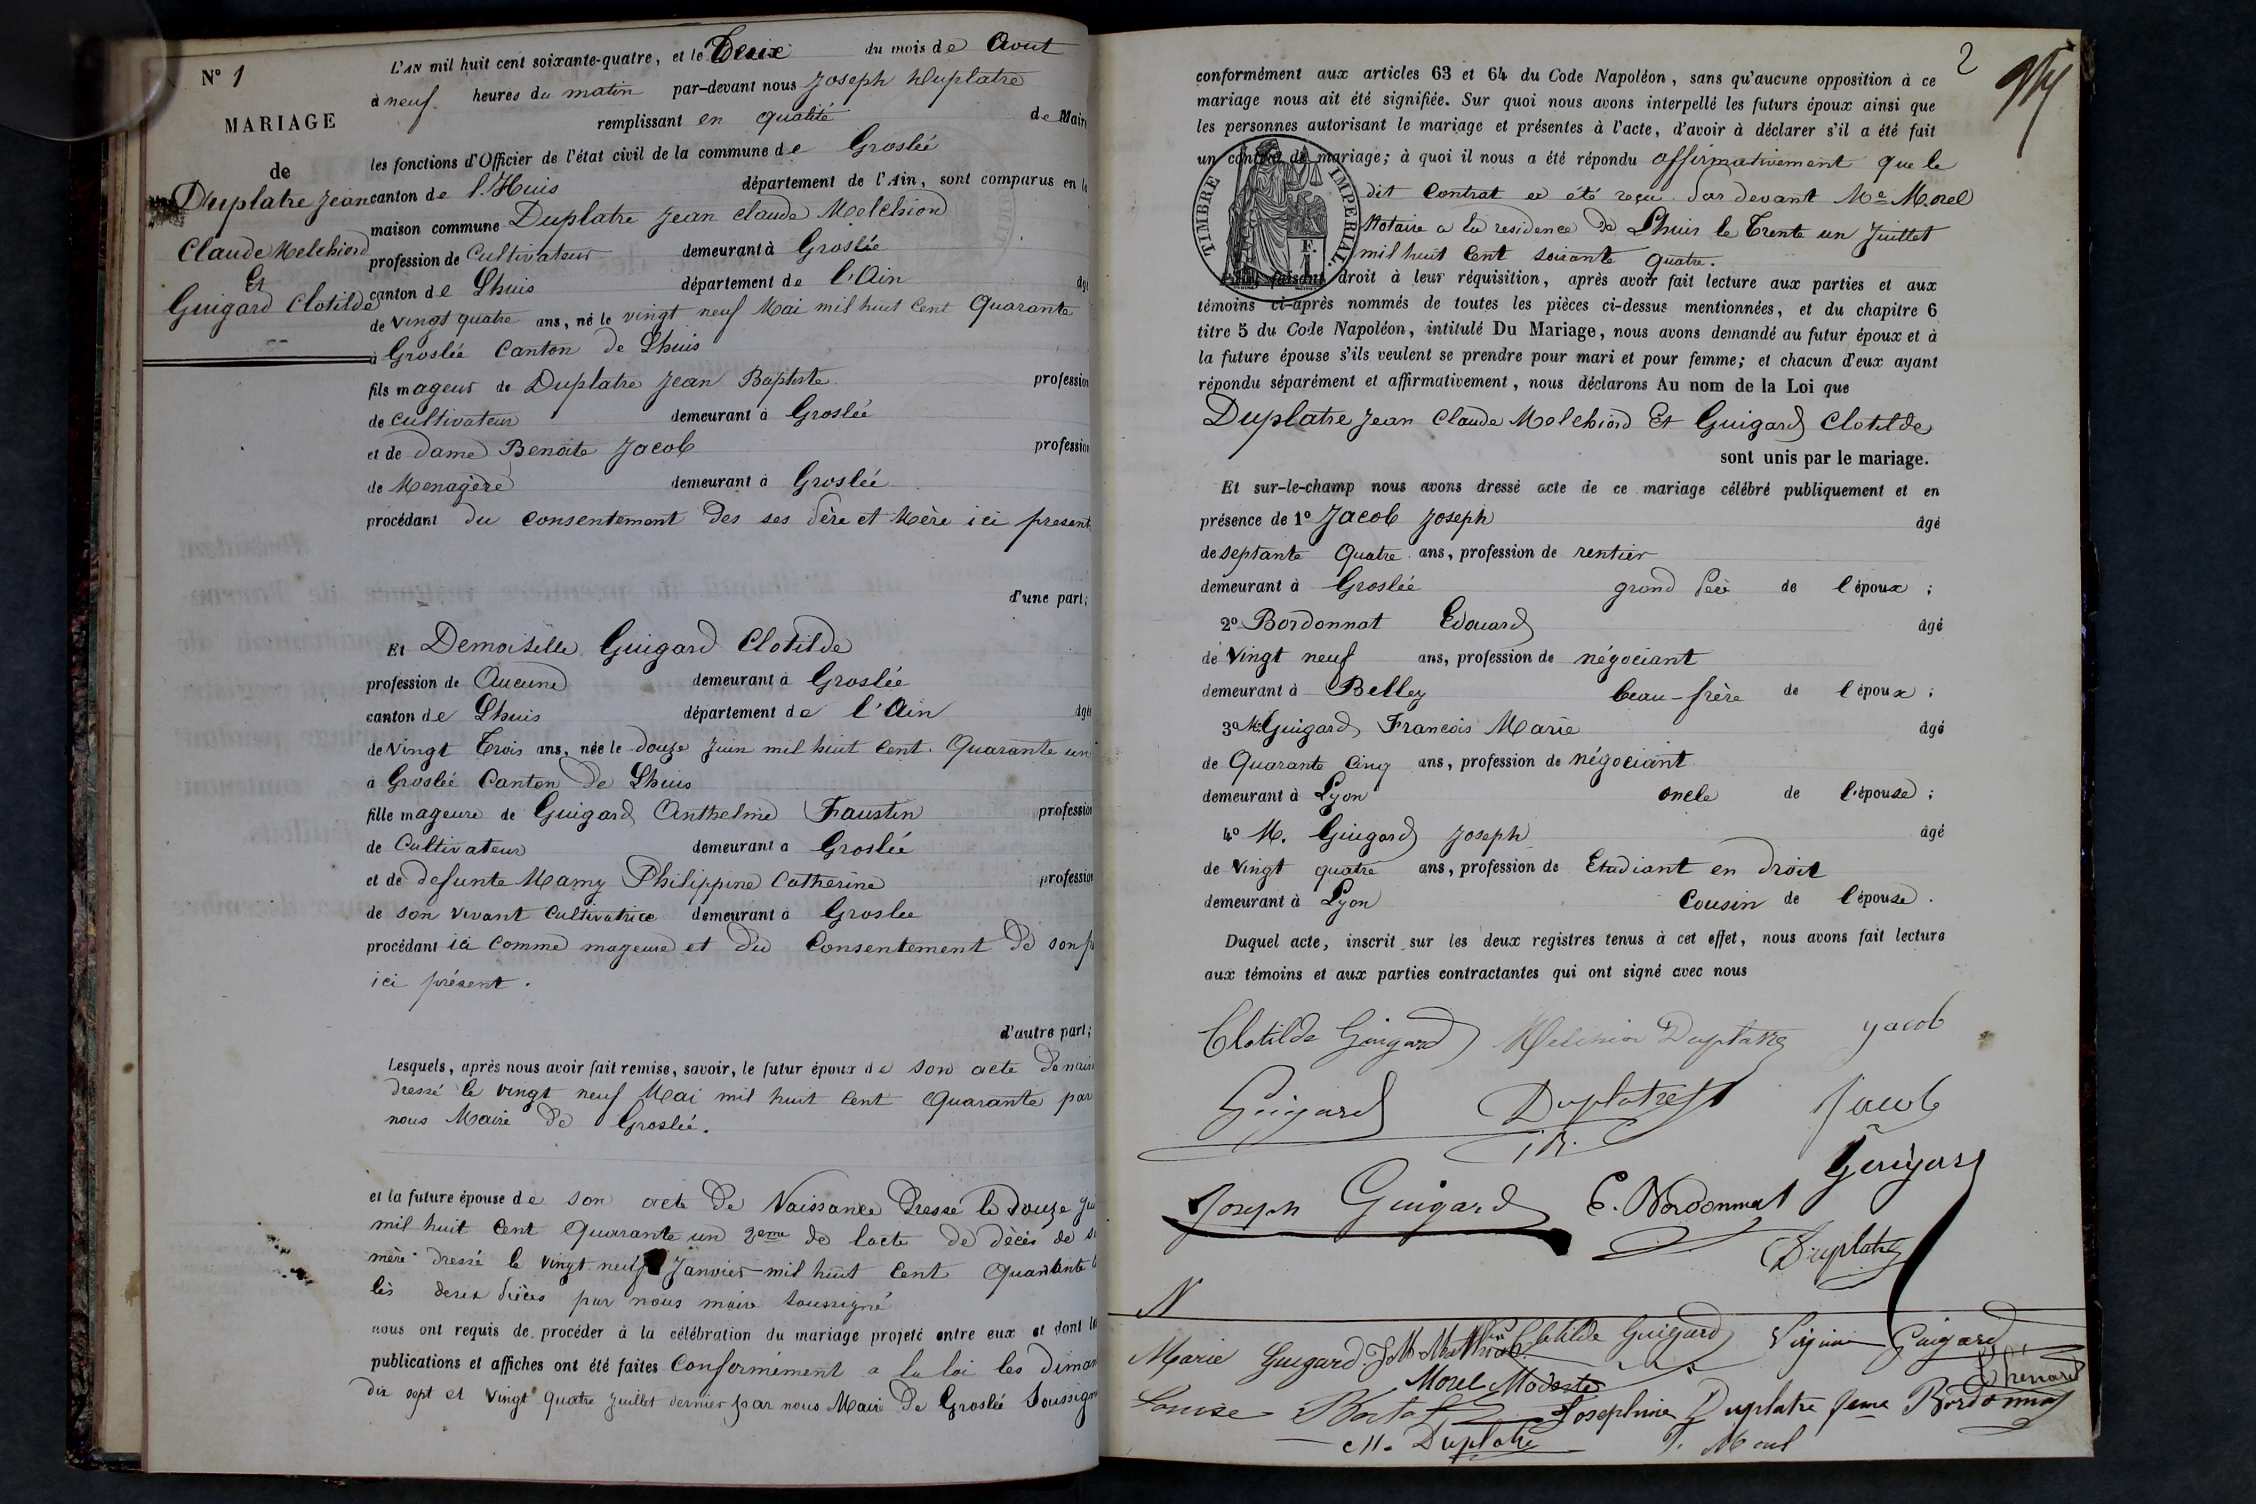 N° 1
MARIAGE
de
Duplatre Jean
Claude Melchiord
Et
Guigard Clotilde
L'AN mil huit cent soixante-quatre, et le Deux du mois de Aout
à neuf heures du matin par-devant nous Joseph Duplatre
remplissant en qualité de Maire
les fonctions d'Officier de l'état civil de la commune de Groslée
canton de l'Huis département de l'Ain, sont comparus en la
maison commune Duplatre Jean Claude Melchiord
profession de Cultivateur demeurant à Groslée
canton de Lhuis département de l'Ain âgé
de vingt quatre ans, né le vingt neuf Mai mil huit Cent Quarante
à Groslée Canton de Lhuis
fils mageur de Duplatre Jean Baptiste profession
de cultivateur demeurant à Groslée
et de dame Benoite Jacob profession
de Menagère demeurant à Groslée
procédant du consentement des ses Père et Mère ici present
d'une part;
Et Demoiselle Guigard Clotilde
profession de Aucune demeurant à Groslée
canton de Lhuis département de l'Ain âgée
de Vingt Trois ans, née le douze Juin mil huit Cent Quarante un
à Groslée Canton de Lhuis
fille mageure de Guigard Anthelme Faustin profession
de Cultivateur demeurant a Groslée
et de defunte Mamy Philippine Catherine profession
de son vivant Cultivatrice demeurant à Groslee
procédant ici comme mageure et du Consentement de son p
ici présent.
d'autre part;
Lesquels, après nous avoir fait remise, savoir, le futur époux de son acte de nais
dressé le vingt neuf Mai mil huit Cent Quarante par
nous Maire de Groslée.
et la future épouse de son acte de Naissance dressé le douze Jui
mil huit Cent Quarante un 2eme de lacte de décès de s
mère dressé le vingt neuf Janvier mil huit Cent Quarante
les deux pièces par nous maire soussigné
nous ont requis de procéder à la célébration du mariage projeté entre eux et dont le
publications et affiches ont été faites Conformément a la loi les diman
dix sept et vingt quatre Juillet dernier par nous Maire de Groslée Soussigné
2
conformément aux articles 63 et 64 du Code Napoléon, sans qu'aucune opposition à ce
mariage nous ait été signifiée. Sur quoi nous avons interpellé les futurs époux ainsi que
les personnes autorisant le mariage et présentes à l'acte, d'avoir à déclarer s'il a été fait
un contrat de mariage; à quoi il nous a été répondu affirmativement que le
dit Contrat a été reçu Par devant Me Morel
Notaire a la residence de Lhuis le Trente un Juillet
mil huit Cent soixante quatre.
TIMBRE IMPERIAL
F.
1
faisant droit à leur réquisition, après avoir fait lecture aux parties et aux
témoins ci-après nommés de toutes les pièces ci-dessus mentionnées, et du chapitre 6
titre 5 du Code Napoléon, intitulé Du Mariage, nous avons demandé au futur époux et à
la future épouse s'ils veulent se prendre pour mari et pour femme; et chacun d'eux ayant
répondu séparément et affirmativement, nous déclarons Au nom de la Loi que
Duplatre Jean Claude Melchiord Et Guigard Clotilde
sont unis par le mariage.
Et sur-le-champ nous avons dressé acte de ce mariage célébré publiquement et en
présence de 1° Jacob Joseph âgé
de septante Quatre ans, profession de rentier
demeurant à Groslée grand Père de l'époux ;
2° Bordonnat Edouard âgé
de Vingt neuf ans, profession de négociant
demeurant à Belley beau-frère de l'époux ;
3° Mr Guigard Francois Marie âgé
de Quarante Cinq ans, profession de négociant
demeurant à Lyon oncle de l'épouse ;
4° M. Guigard Joseph âgé
de Vingt quatre ans, profession de Etudiant en droit
demeurant à Lyon Cousin de l'épouse.
Duquel acte, inscrit sur les deux registres tenus à cet effet, nous avons fait lecture
aux témoins et aux parties contractantes qui ont signé avec nous
Clotilde Guigard Melchior Duplatre Jacob
Guigard Duplatre Jacob
Guigard
Joseph Guigard E. Bordonnat
Duplatre
Marie Guigard Clotilde Guigard Virginie Guigard
Morel Modeste
Louise Josephine Duplatre feme Bordonnat
M. Duplatre